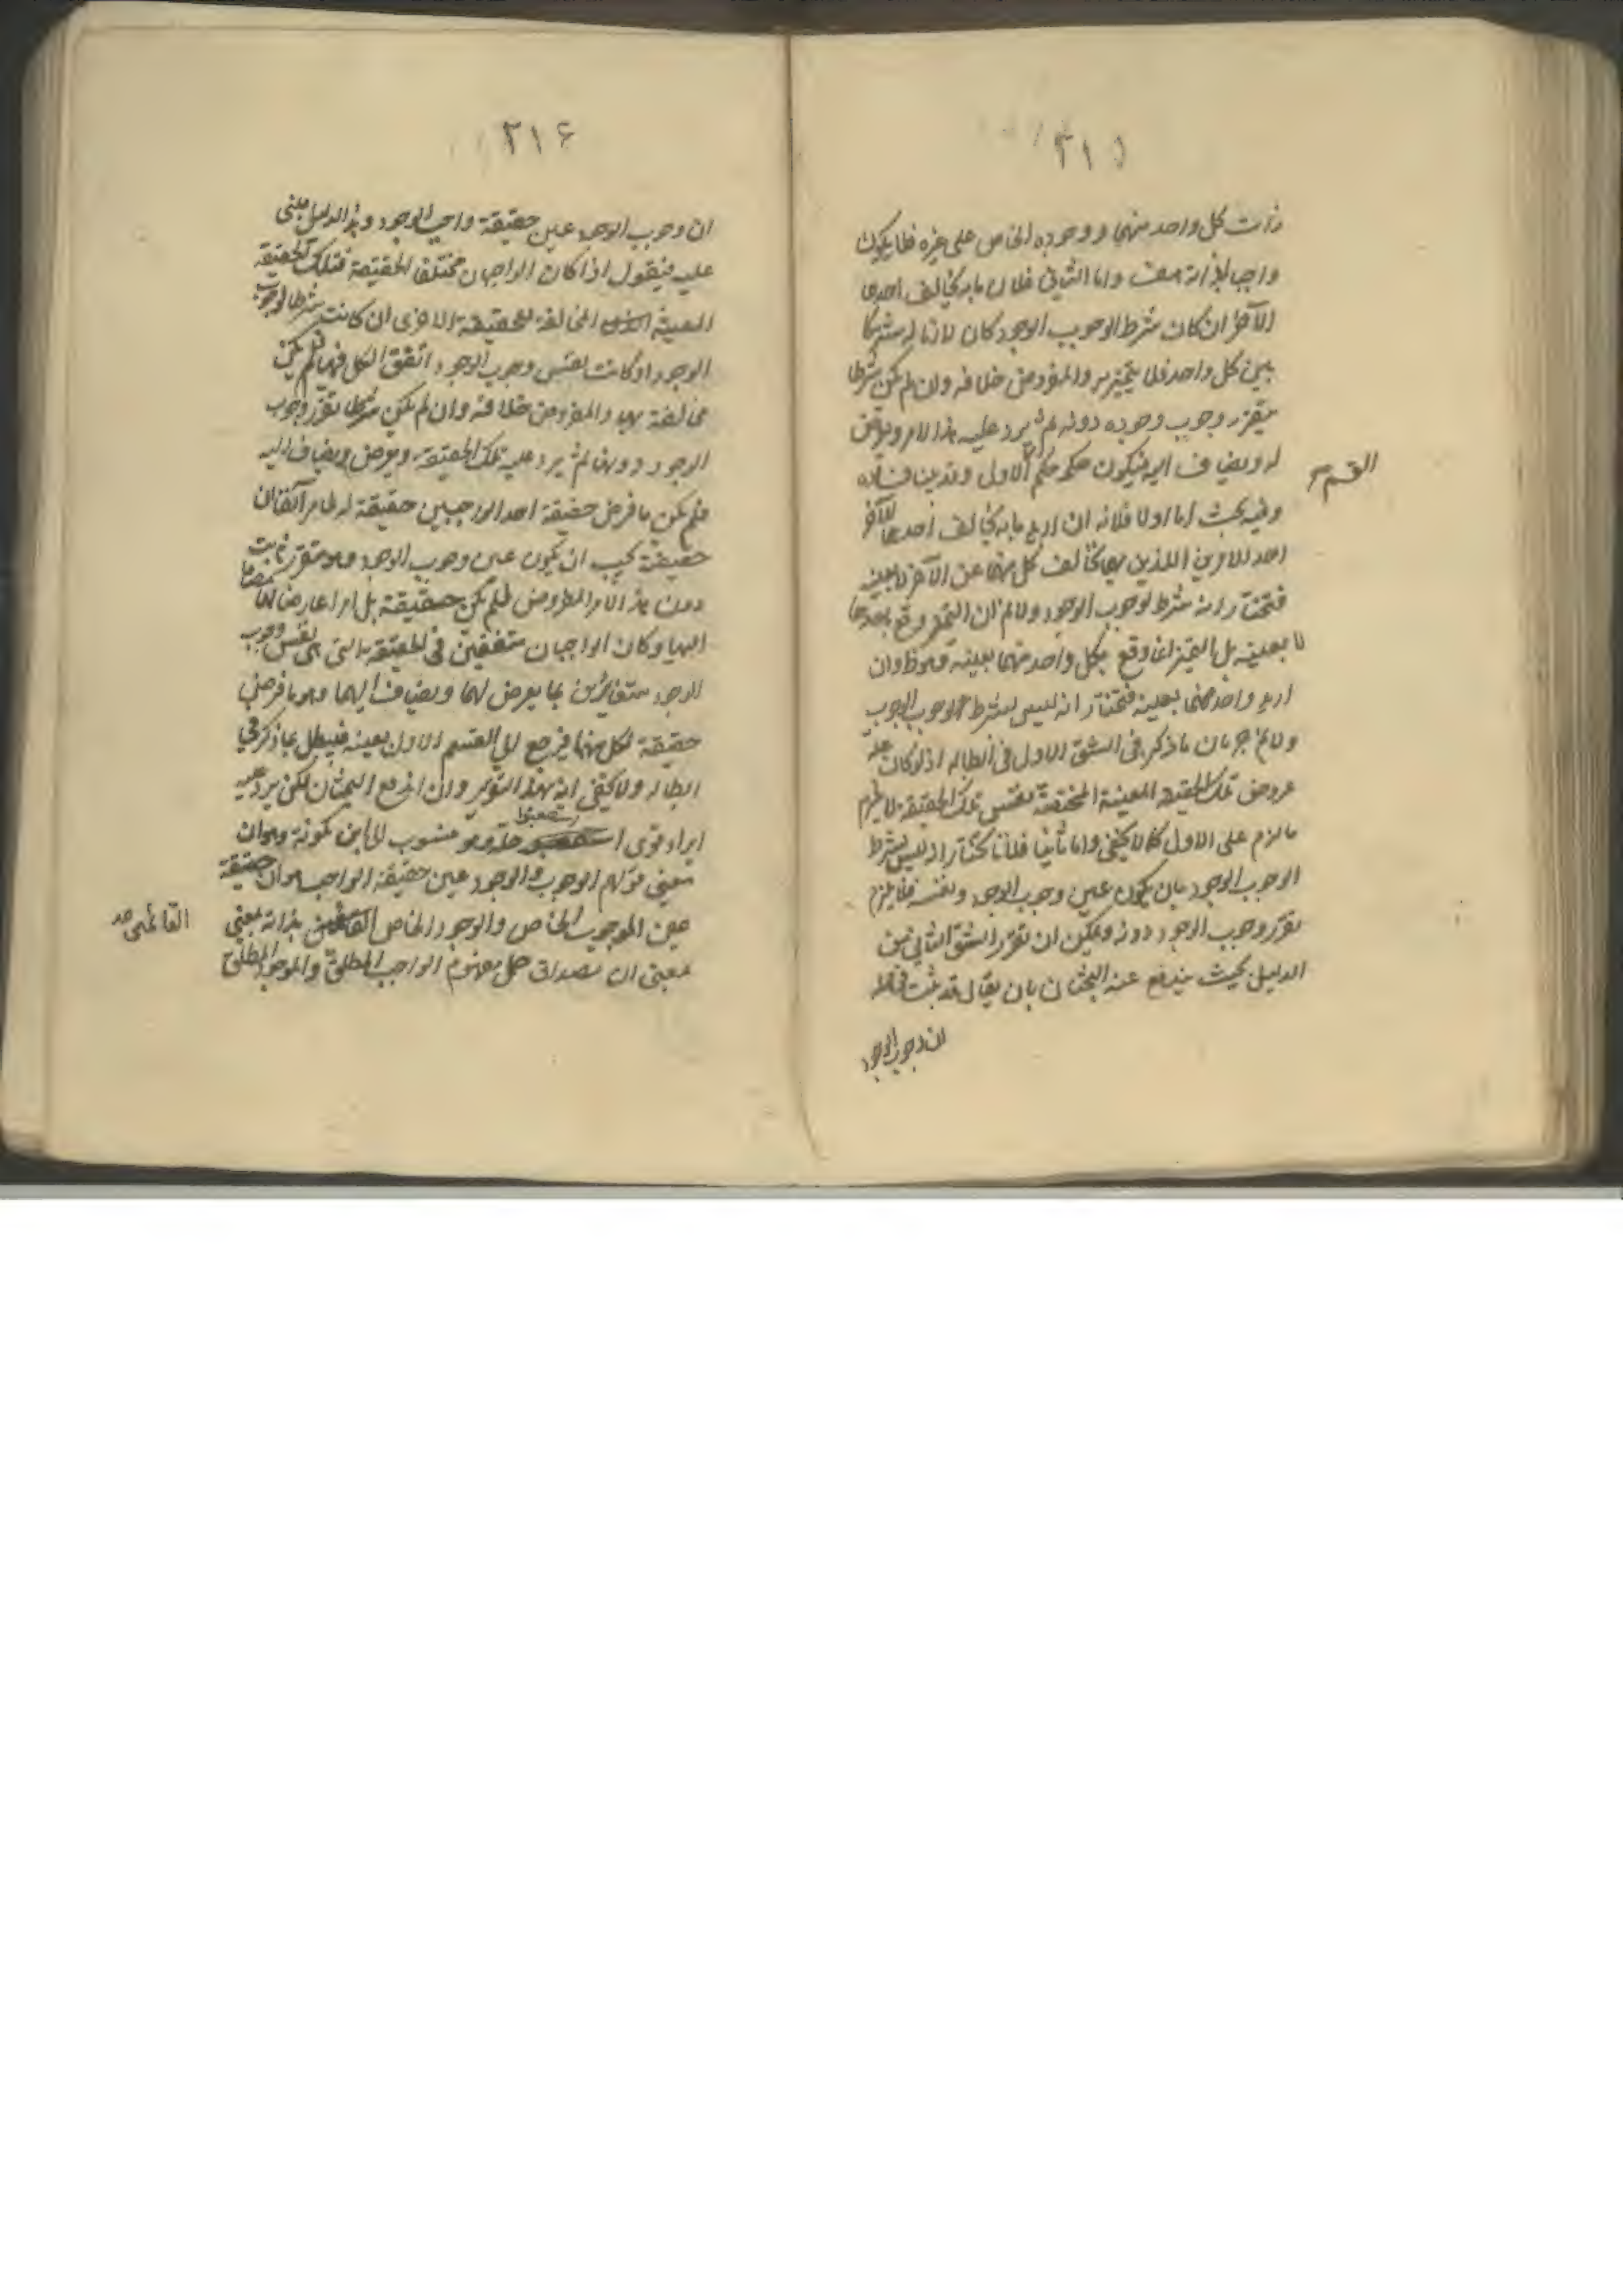 ٣١٥
ذات كل واحد منهما ووجوده الخاص على غيره فلا يكون
واجبا لذاته هف واما الثاني فلان ما به يخالف احدهما
الآخر ان كان شرط الوجوب الوجود كان لازما له مشتركا
بين كل واحد فلا يتميز به والمفروض خلافه وان لم يكن شرطا
يتقرر وجوب وجوده دونه ثم يرد عليه هذا الامر ويعرض
له ويضاف اليه فيكون حكمه حكم الاولى وقد بين فساده
القسم
وفيه بحث اما اولا فلانه ان اريد ما به يخالف احدهما الآخر
احد الامرين اللذين بهما يخالف كل منهما عن الآخر لا بعينه
فنختار انه شرط لوجوب الوجود ولا نم ان التميز وقع باحدهما
لا بعينه بل التميز انما وقع بكل واحد منهما بعينه وهو ظ وان
اريد واحد منهما بعينه فنختار انه ليس بشرط لوجوب الوجوب
ولا نم جريان ما ذكر في الشق الاول في ابطاله اذ لو كان علة
عروض تلك الحقيقة المعينة المختصة نفس تلك الحقيقة لا يلزم
ما لزم على الاول كما لا يخفى واما ثانيا فلانا نختار انه ليس بشرط
الوجوب الوجود بان يكون عين وجوب الوجود ونفسه فلا يلزم
تقرر وجوب الوجود دونه ويمكن ان تقرر الشق الثاني من
الدليل بحيث يندفع عنه البحثان بان يقال قد ثبت في محله
ان وجوب الوجود
٣١۶
ان وجوب الوجود عين حقيقة واجب الوجود وهذا الدليل مبنى
عليه فنقول اذا كان الواجبان مختلفى الحقيقة فتلك الحقيقة
المعينة المخالفة للحقيقة الاخرى ان كانت شرطا لوجوب
الوجود او كانت نفس وجوب الوجود اتفق الكل فيها فلم يكن
مخالفة بها والمفروض خلافه وان لم يكن شرطا تقرر وجوب
الوجود دونها ثم يرد عليه تلك الحقيقة ويعرض ويضاف اليه
فلم يكن ما فرض حقيقة احد الواجبين حقيقة له لما مر آنفا ان
حقيقة يجب ان يكون عين وجوب الوجود وهو متقرر ثابت
دون هذا الامر المفروض فلم يكن حقيقة بل امرا عارضا لها مضافا
اليها وكان الواجبان متفقين في الحقيقة التى هى نفس وجوب
الوجود متغايرين بما يعرض لهما ويضاف اليهما وهو ما فرض
حقيقة لكل منهما فرجع الى القسم الاول بعينه فيبطل بما ذكر في
ابطاله ولا يخفى انه بهذا التقرير وان اندفع البحثان لكن يرد عليه
ايراد قوى استصعبوا حله وهو منسوب الى ابن كمونة وهو ان
معنى قولهم الوجوب والوجود عين حقيقة الواجب هو ان حقيقة
عين الوجوب الخاص والوجود الخاص القائمين بذاته بمعنى
القائمين صح
بمعنى ان مصداق حمل مفهوم الواجب المطلق والموجود المطلق